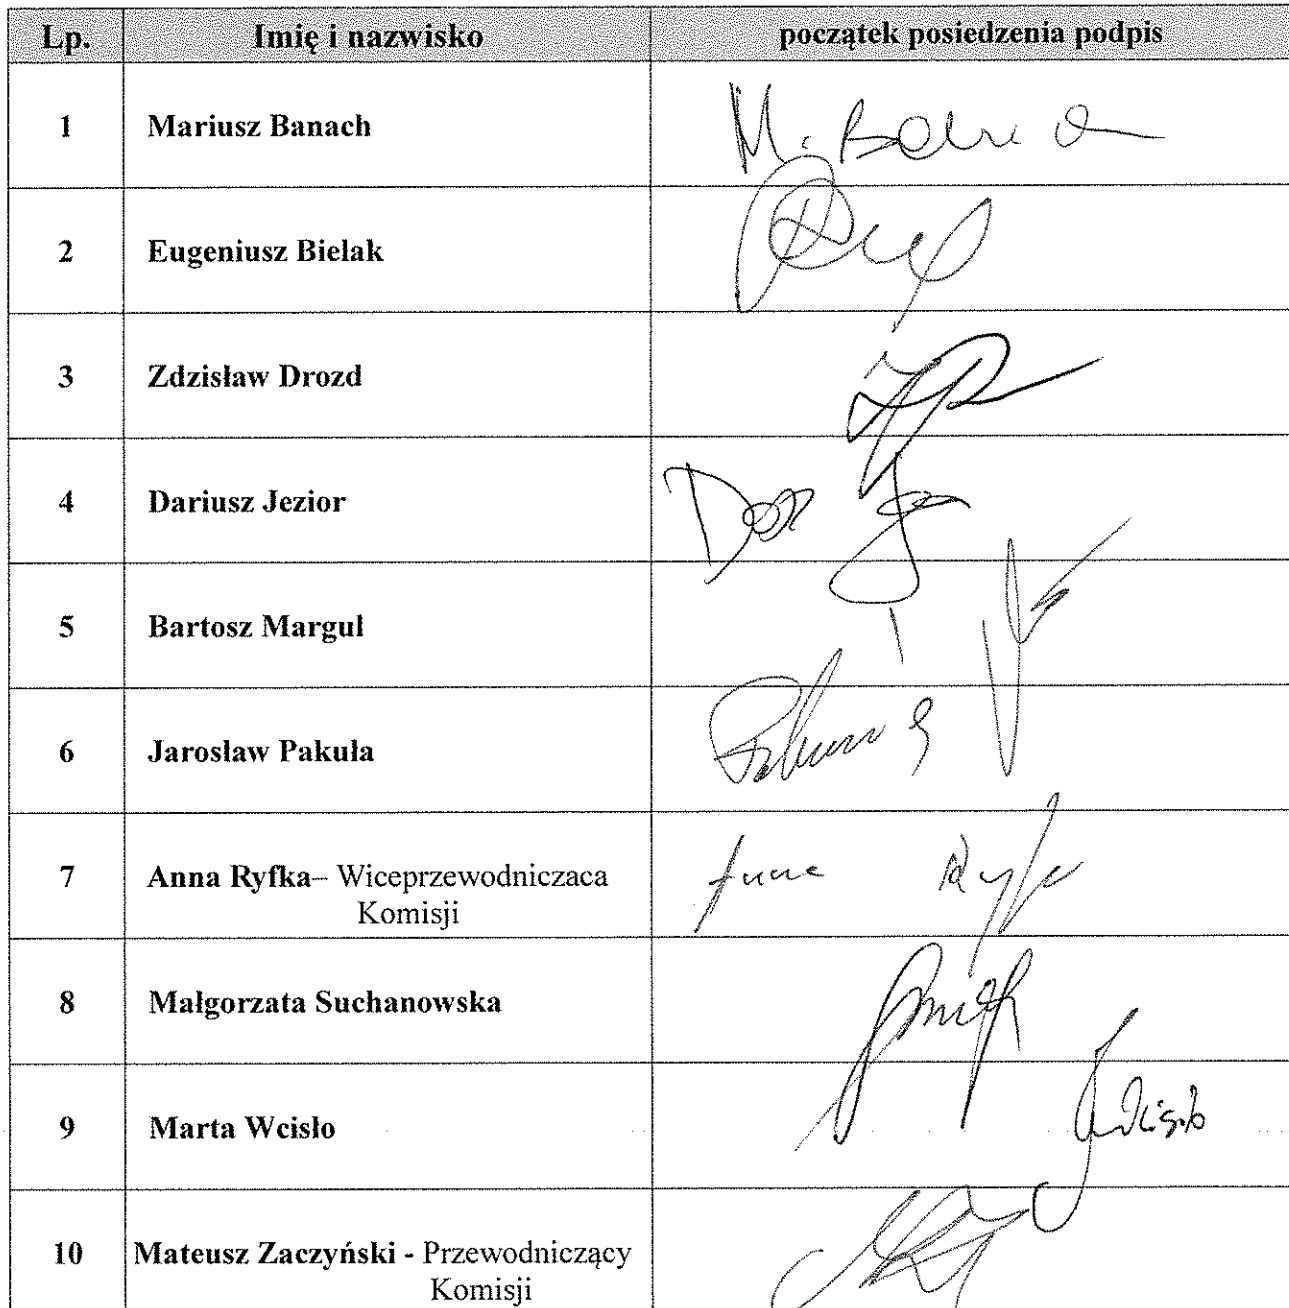 Lp. Imię i nazwisko początek posiedzenia podpis
1 Mariusz Banach M. Banach
2 Eugeniusz Bielak
3 Zdzisław Drozd
4 Dariusz Jezior
5 Bartosz Margul
6 Jarosław Pakuła
7 Anna Ryfka– Wiceprzewodniczaca Anna Ryfka
Komisji
8 Małgorzata Suchanowska
9 Marta Wcisło Wcisło
10 Mateusz Zaczyński - Przewodniczący
Komisji